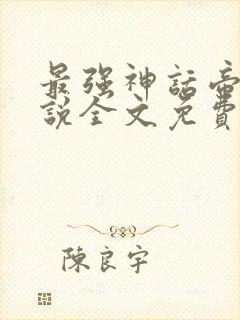 最强神話帝
說全文免費
陳良宇